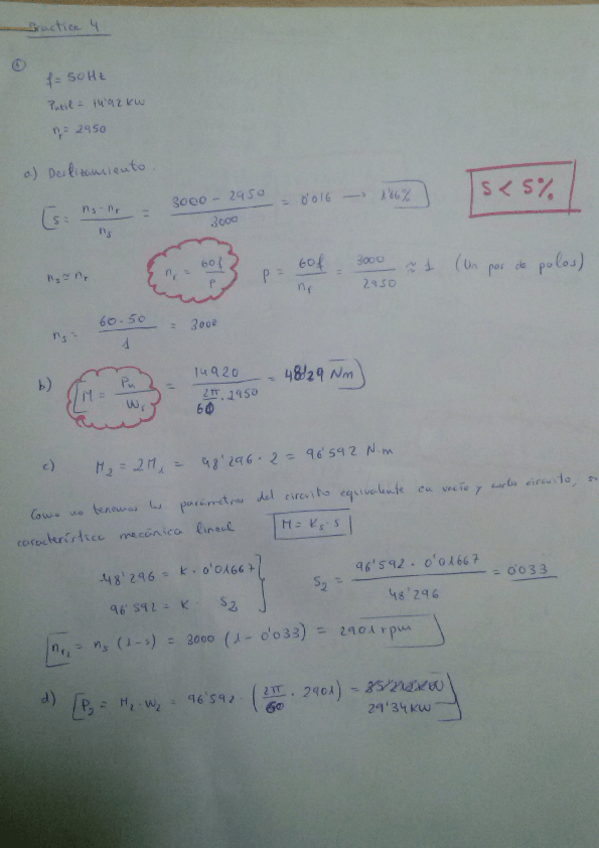 Practica 4
①
f = 50Hz
Putil = 14'92 KW
nr = 2950
a) Deslizamiento.
S = (ns - nr) / ns = (3000 - 2950) / 3000 = 0'016 → 1'66%
S < 5%
ns ≈ nr
nr = 60f / p
p = 60f / nr = 3000 / 2950 ≈ 1 (Un par de polos)
ns = 60·50 / 1 = 3000
b) M = Pu / Wr = 14920 / (2π/60 · 2950) = 48'29 Nm
c) M2 = 2M1 = 48'296 · 2 = 96'592 N·m
Como no tenemos los parámetros del circuito equivalente en vacío y corto circuito,
característica mecánica lineal M = Ks·S
48'296 = K · 0'01667
96'592 = K · S2
S2 = 96'592 · 0'01667 / 48'296 = 0'033
nr2 = ns (1-s) = 3000 (1 - 0'033) = 2901 rpm
d) P2 = M2 · W2 = 96'592 · (2π/60 · 2901) =
29'34 KW